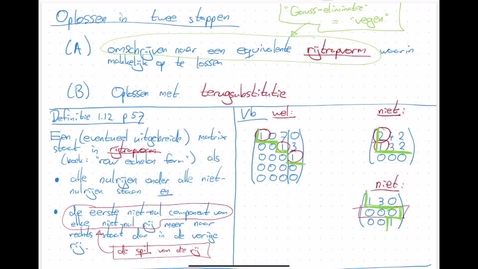 Oplossen in twee stappen
"Gauss-eliminatie"
= "vegen"
(A) omschrijven naar een equivalente rijtrapvorm waarin
makkelijk op te lossen
(B) Oplossen met terugsubstitutie
Definitie 1.12 p57
Een (eventueel uitgebreide) matrix
staat in rijtrapvorm
(boek: "row echelon form") als
• alle nulrijen onder alle niet-
nulrijen staan en
• de eerste niet-nul component van
elke niet-nul rij meer naar
rechts staat dan in de vorige
rij.
de spil van de rij
Vb wel:
0 0 0 1
0 0 0 0
0 0 0 0
niet:
niet:
1 3 0
0 0 0
0 0 1